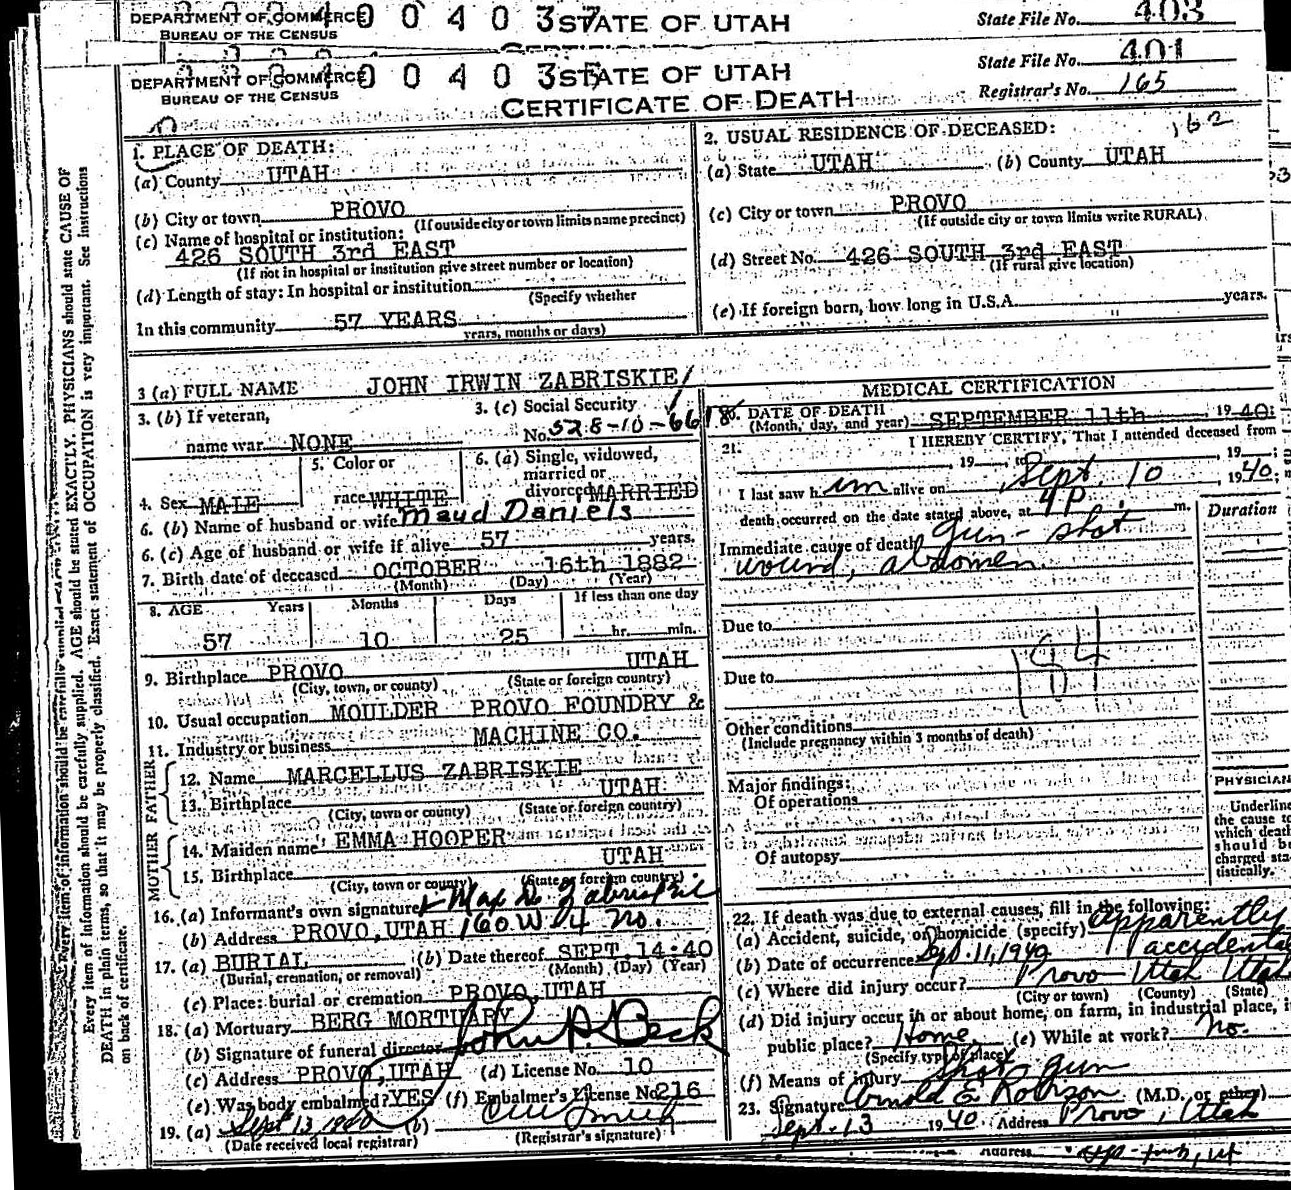 DEPARTMENT OF COMMERCE
BUREAU OF THE CENSUS
STATE OF UTAH
State File No. 403
DEPARTMENT OF COMMERCE
BUREAU OF THE CENSUS
STATE OF UTAH
CERTIFICATE OF DEATH
State File No. 401
Registrar's No. 165
162
1. PLACE OF DEATH:
(a) County UTAH
(b) City or town PROVO
(If outside city or town limits name precinct)
(c) Name of hospital or institution:
426 SOUTH 3rd EAST
(If not in hospital or institution give street number or location)
(d) Length of stay: In hospital or institution
(Specify whether
In this community 57 YEARS
years, months or days)
2. USUAL RESIDENCE OF DECEASED:
(a) State UTAH (b) County UTAH
(c) City or town PROVO
(If outside city or town limits write RURAL)
(d) Street No. 426 SOUTH 3rd EAST
(If rural give location)
(e) If foreign born, how long in U.S.A. years.
3 (a) FULL NAME JOHN IRWIN ZABRISKIE
3. (b) If veteran,
name war NONE
3. (c) Social Security
No. 528-10-6618
4. Sex MALE
5. Color or
race WHITE
6. (a) Single, widowed,
married or
divorced MARRIED
6. (b) Name of husband or wife Maud Daniels
6. (c) Age of husband or wife if alive 57 years.
7. Birth date of deceased OCTOBER 16th 1882
(Month) (Day) (Year)
8. AGE Years Months Days If less than one day
57 10 25 hr. min.
9. Birthplace PROVO UTAH
(City, town, or county) (State or foreign country)
10. Usual occupation MOULDER PROVO FOUNDRY &
11. Industry or business MACHINE CO.
FATHER
12. Name MARCELLUS ZABRISKIE
13. Birthplace UTAH
(City, town, or county) (State or foreign country)
MOTHER
14. Maiden name EMMA HOOPER
15. Birthplace UTAH
(City, town or county) (State or foreign country)
16. (a) Informant's own signature Max D. Zabriskie
(b) Address PROVO, UTAH 160 W 4 No.
17. (a) BURIAL (b) Date thereof SEPT. 14-40
(Burial, cremation, or removal) (Month) (Day) (Year)
(c) Place: burial or cremation PROVO, UTAH
18. (a) Mortuary BERG MORTUARY
(b) Signature of funeral director John A. Beck
(c) Address PROVO, UTAH (d) License No. 10
(e) Was body embalmed? YES (f) Embalmer's License No. 216
19. (a) Sept 13 1940 (b)
(Date received local registrar) (Registrar's signature)
MEDICAL CERTIFICATION
20. DATE OF DEATH
(Month, day, and year) SEPTEMBER 11th 1940;
21. I HEREBY CERTIFY, That I attended deceased from
, 19 , to , 19 ;
I last saw him alive on Sept. 10, 1940;
death occurred on the date stated above, at 4 P. m.
Duration
Immediate cause of death gun-shot
wound, abdomen.
Due to
184
Due to
Other conditions
(Include pregnancy within 3 months of death)
Major findings:
Of operations
Of autopsy
PHYSICIAN
Underline
the cause to
which death
should be
charged sta-
tistically.
22. If death was due to external causes, fill in the following:
(a) Accident, suicide, or homicide (specify) apparently
accidental
(b) Date of occurrence Sept. 11, 1940
(c) Where did injury occur? Provo Utah Utah
(City or town) (County) (State)
(d) Did injury occur in or about home, on farm, in industrial place, i
public place? Home (e) While at work? No.
(Specify type of place)
(f) Means of injury Shot gun
23. Signature Arnold E Robison (M.D. or other)
Sept. 13 1940 Address Provo, Utah
Address
Every item of information should be carefully supplied. AGE should be stated EXACTLY. PHYSICIANS should state CAUSE OF
DEATH in plain terms, so that it may be properly classified. Exact statement of OCCUPATION is very important. See instructions
on back of certificate.